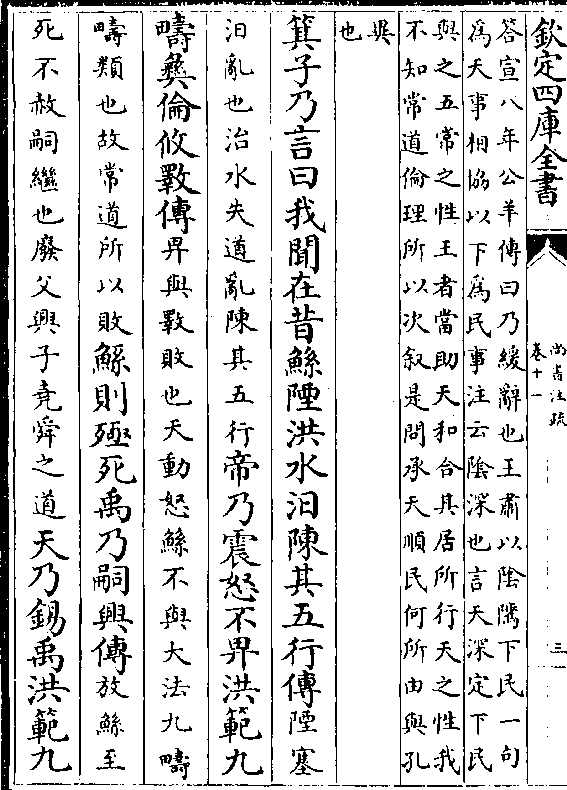 欽定四庫全書
尚書注疏
卷十一
三
答宣八年公羊傳曰乃緩辭也王肅以陰隲下民一句
爲天事相協以下爲民事注云陰深也言天深定下民
與之五常之性王者當助天和合其居所行天之性我
不知常道倫理所以次叙是問承天順民何所由與孔
異
也
箕子乃言曰我聞在昔鯀陻洪水汩陳其五行傳陻塞
汩亂也治水失道亂陳其五行帝乃震怒不畀洪範九
疇彝倫攸斁傳畀與斁敗也天動怒鯀不與大法九疇
疇類也故常道所以敗鯀則殛死禹乃嗣興傳放鯀至
死不赦嗣繼也廢父興子堯舜之道天乃錫禹洪範九